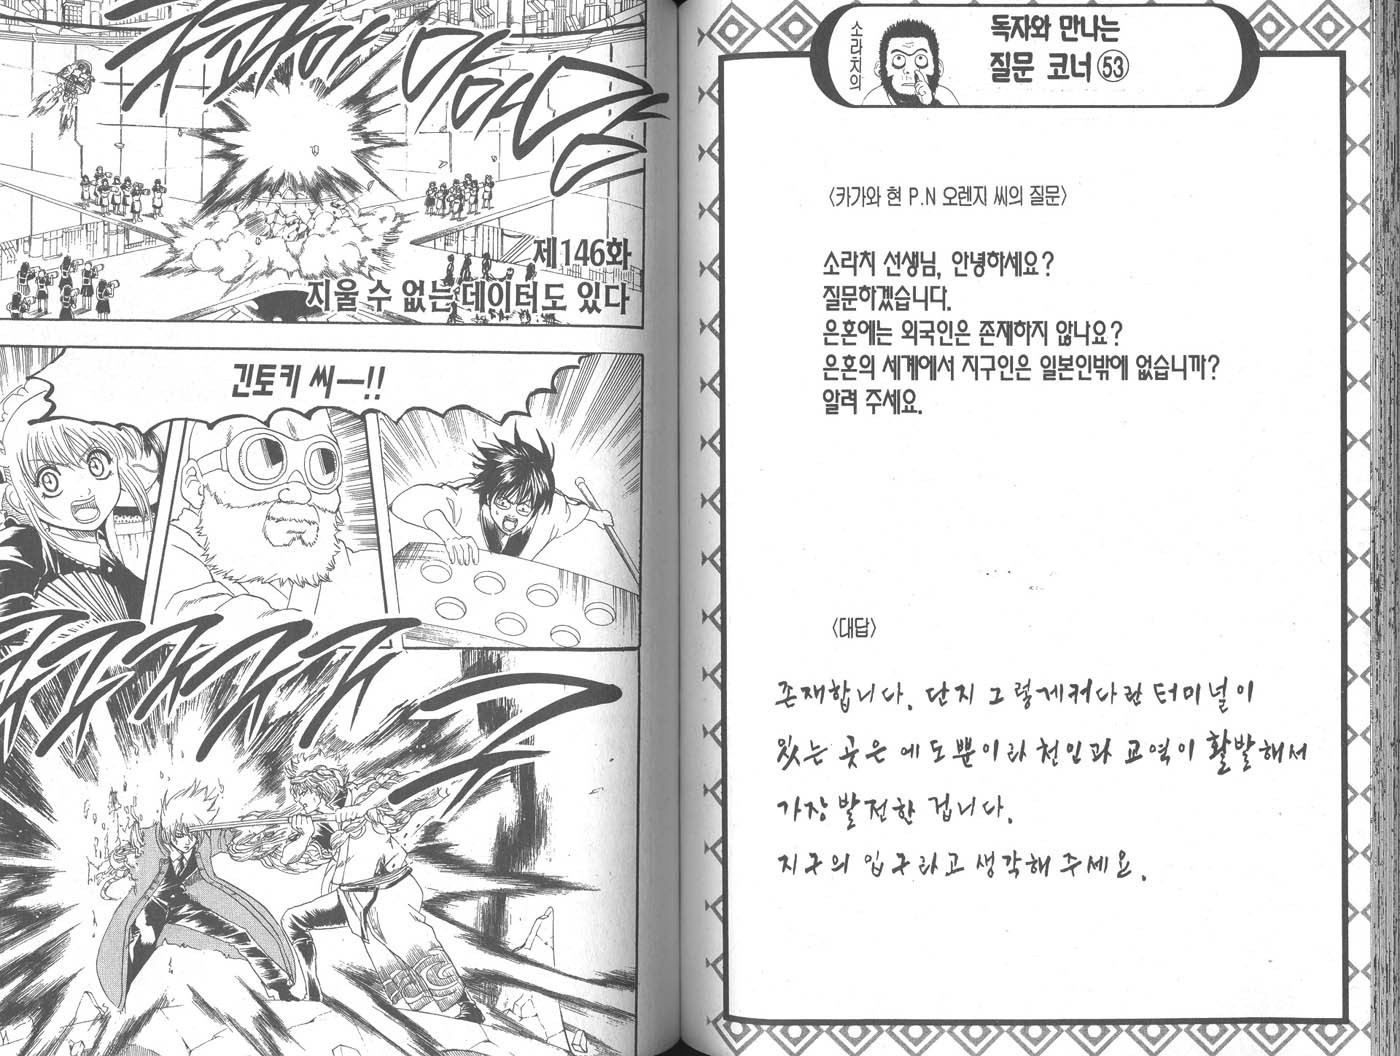 쿠콰아아아아앙
제146화
지울 수 없는 데이터도 있다
긴토키 씨―!!
구
소라치의
독자와 만나는
질문 코너 53
〈카가와 현 P.N 오렌지 씨의 질문〉
소라치 선생님, 안녕하세요?
질문하겠습니다.
은혼에는 외국인은 존재하지 않나요?
은혼의 세계에서 지구인은 일본인밖에 없습니까?
알려 주세요.
〈대답〉
존재합니다. 단지 그렇게커다란 터미널이
있는 곳은 에도뿐이라 천인과 교역이 활발해서
가장 발전한 겁니다.
지구의 입구라고 생각해 주세요.